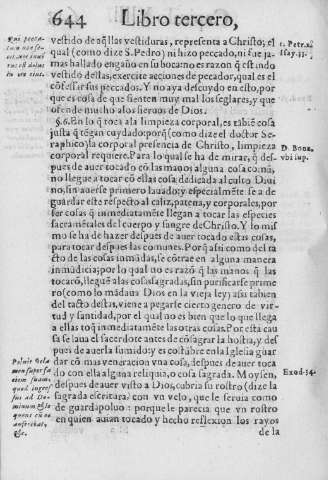 644 Libro tercero,
vestido de aq̃llas vestiduras, representa a Christo; el
qual (como dize S. Pedro) ni hizo peccado, ni fue ja-
mas hallado engaño en su boca: no es razon q̃ est ãdo
vestido dellas, exercite acciones de pecador, qual es el
cõfessar sus peccados. Y no aya descuydo en esto, por
que es cosa de que sienten muy mal los seglares, y que
ofende mucho a los sieruos de Dios.
§. 6. En lo q̃ toca a la limpieza corporal, es tãbiẽ cosa
justa q̃ tẽgan cuydado: porq̃ (como dize el doctor Se-
raphico) la corporal presencia de Christo, limpieza
corporal requiere. Para lo qual se ha de mirar, q̃ des-
pues de auer tocado cõ las manos alguna cosa comũ,
no llegue a tocar cõ ellas cosa dedicada al culto Diui
no, sin auerse primero lauado: y especialmẽte se a de
guardar este respecto al caliz, patena, y corporales, por
ser cosas q̃ inmediatamẽte llegan a tocar las especies
sacramẽtales del cuerpo y sangre de Christo. Y lo mis
mo se ha de hazer despues de auer tocado estas cosas,
para tocar despues las comunes. Porq̃ assi como del ta
cto de las cosas inmũdas, se cõtrae en alguna manera
inmũdicia; por lo qual no es razõ q̃ las manos q̃ las
tocarõ, lleguẽ a las cosas sagradas, sin purificarse prime
ro (como lo mãdaua Dios en la vieja ley) assi tabien
del tacto destas, viene a pegarse cierto genero de vir-
tud y santidad, por el qual no es bien que lo que llega
a ellas toq̃ inmediatamẽte las otras cosas. Por esta cau
sa se laua el sacerdote antes de cõsagrar la hostia, y des
pues de auerla sumido: y es costũbre en la Iglesia guar
dar cõ mas veneracion vna cosa, despues de auer toca
do con ella alguna reliquia, o cosa sagrada. Moysen,
despues de auer visto a Dios, cubria su rostro (dize la
sagrada escritura) con vn velo, que le seruia como
de guardapoluo: porque le parecia que vn rostro
en quien auian tocado y hecho reflexion los rayos
de la
1. Petr. 2.
Isay. 53.
D. Bona.
vbi sup.
Exod. 34.